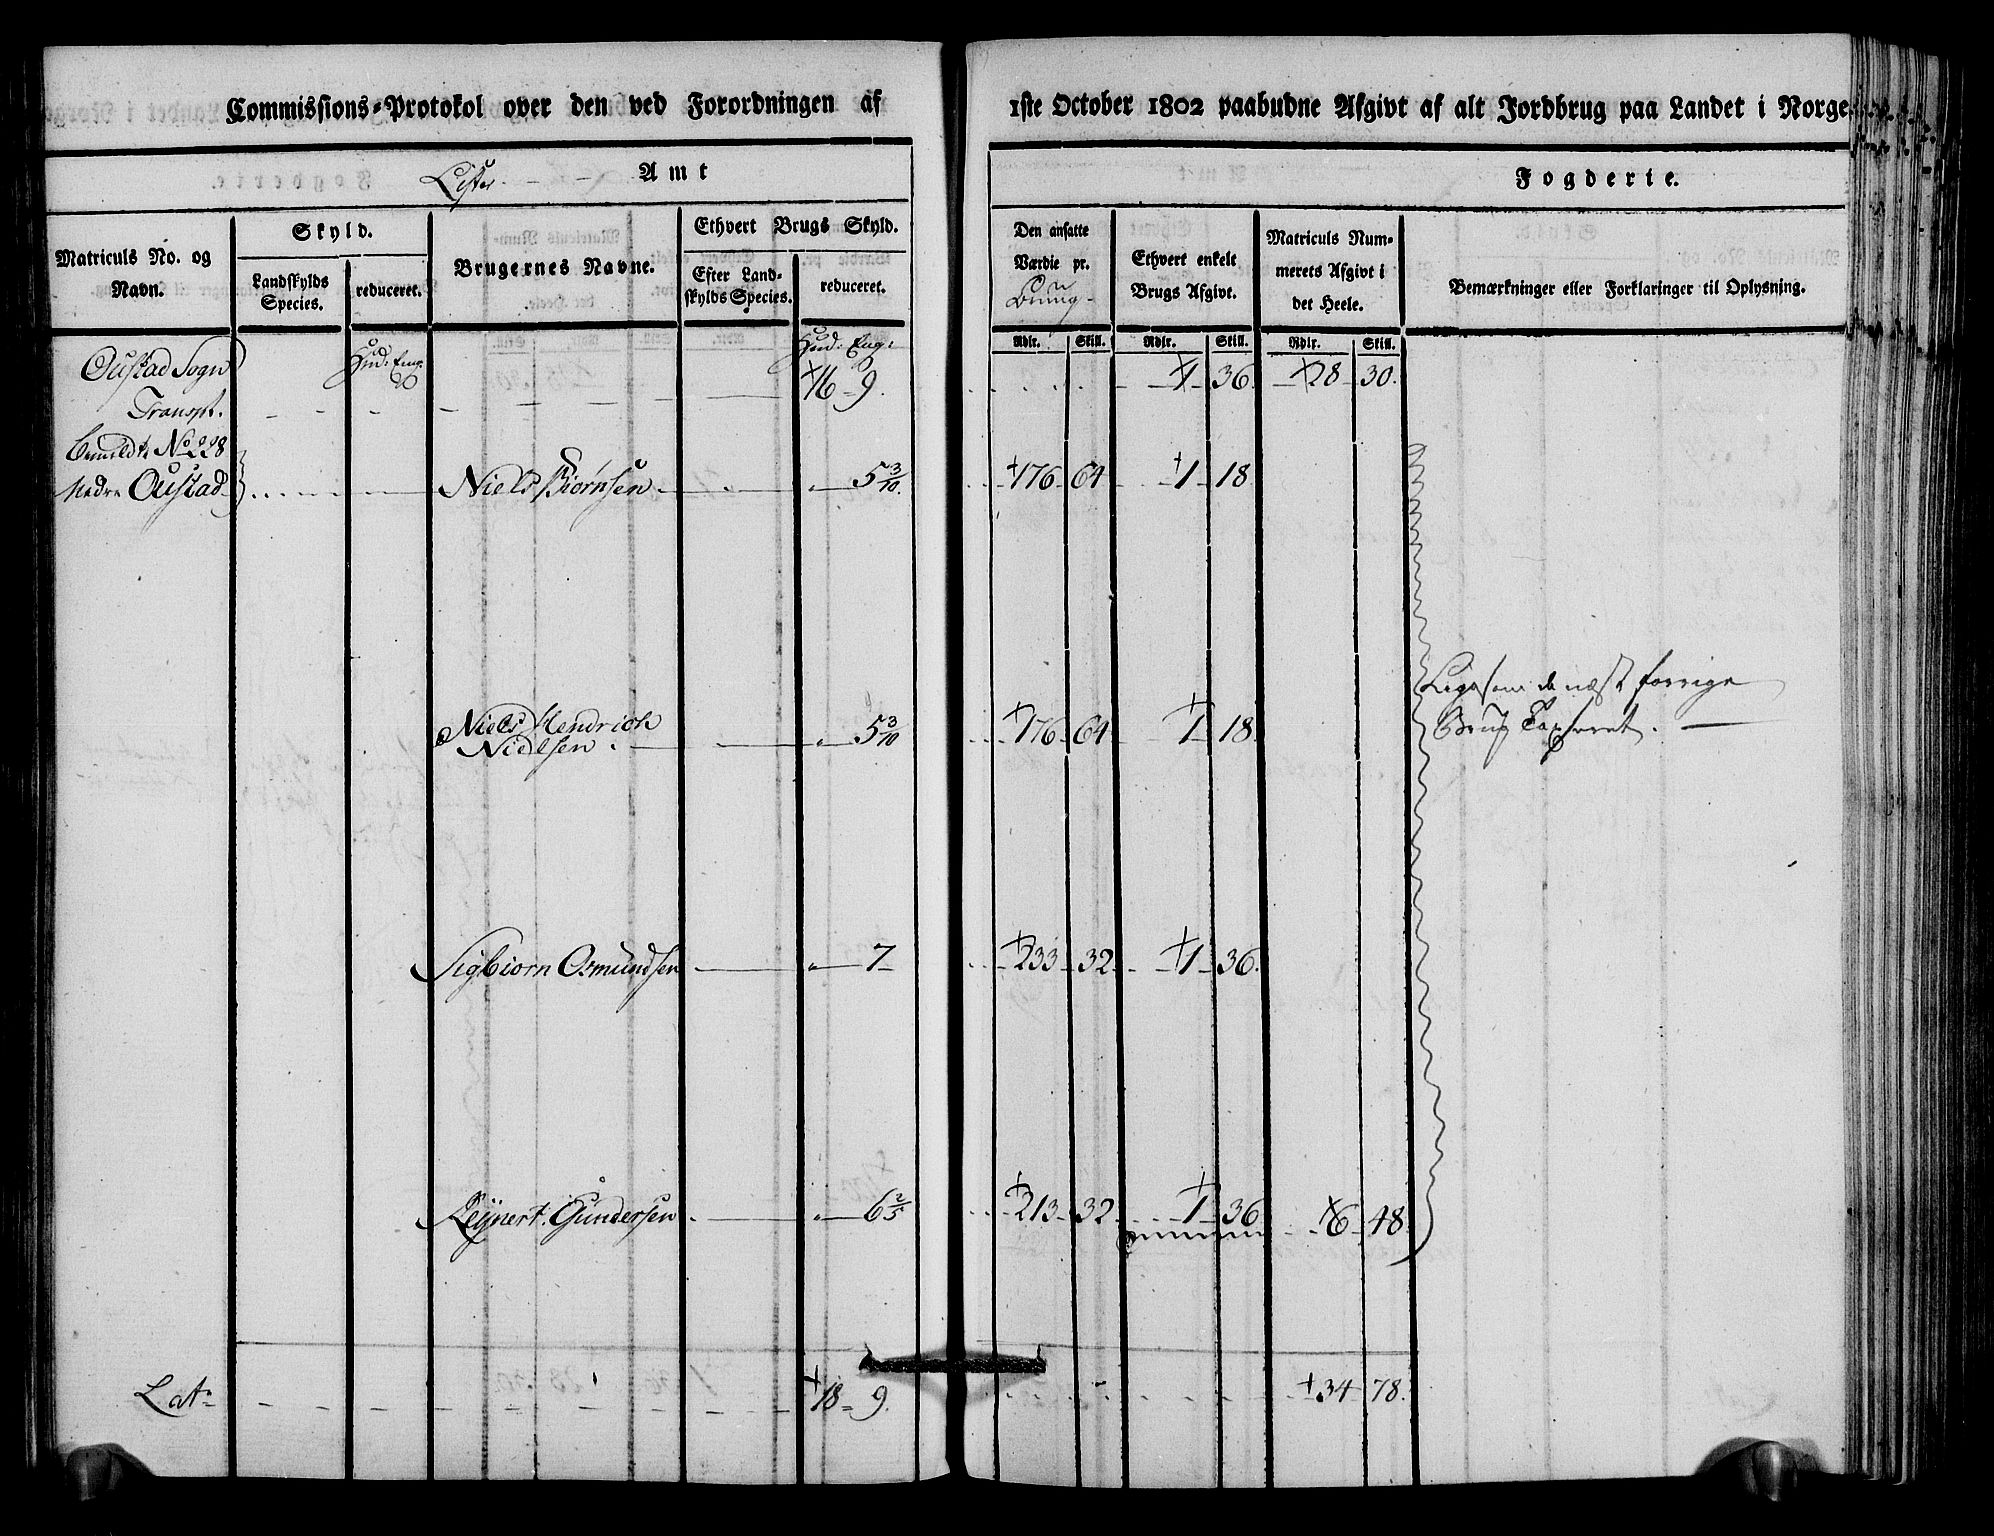 Commissions-Protokol over den ved Forordningen af 1ste October 1802 paabudne Afgivt af alt Jordbrug paa Landet i Norge.
Lister - - Amt
Fogderie.
Matriculs No. og Navn.
Skyld.
Landskylds Species.
reduceret.
Brugernes Navne.
Ethvert Brugs Skyld.
Efter Landskylds Species.
reduceret.
Den ansatte Værdie pr.
Ethvert enkelt Brugs Afgivt.
Matriculs Nummerets Afgivt i det Heele.
Bemærkninger eller Forklaringer til Oplysning.
Rdlr. Skill. Rdlr. Skill. Rdlr. Skill.
Hud: Eng: Hud: Eng:
Oustad Sogn
Transpt. 16 - 9. 1 36. 28 30.
No 228
Nedre Oustad Niels Biørnsen 5 3/10. 176 64 1 18
Niels Hendrich
Nielsen 5 3/10 176 64 1 18
Ligesom de næst forrige
Brug Taxseret.
Sigbiorn Osmundsen 7 233 32 1 36.
Reijnert Gundersen 6 2/5 213 32 1 36 6 48
Lat: 18 9. 34 78.